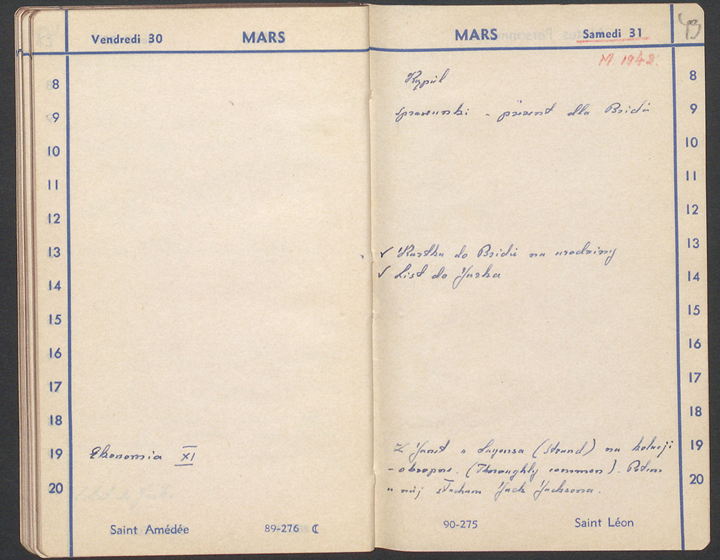 Vendredi 30 MARS
8
9
10
11
12
13
14
15
16
17
18
19 Ekonomia XI
20
Saint Amédée 89-276 ☾
MARS Samedi 31
M. 1942.
8
Sprawunki - prezent dla Bridii 9
10
11
12
✓ Kartka do Bridii na urodziny 13
✓ List do Jurka 14
15
16
17
18
Z Janet u Lyonsa (Strand) na kolacji 19
- okropne. (Thoroughly common). Potem 20
u niej słucham Jack Jacksona.
90-275 Saint Léon